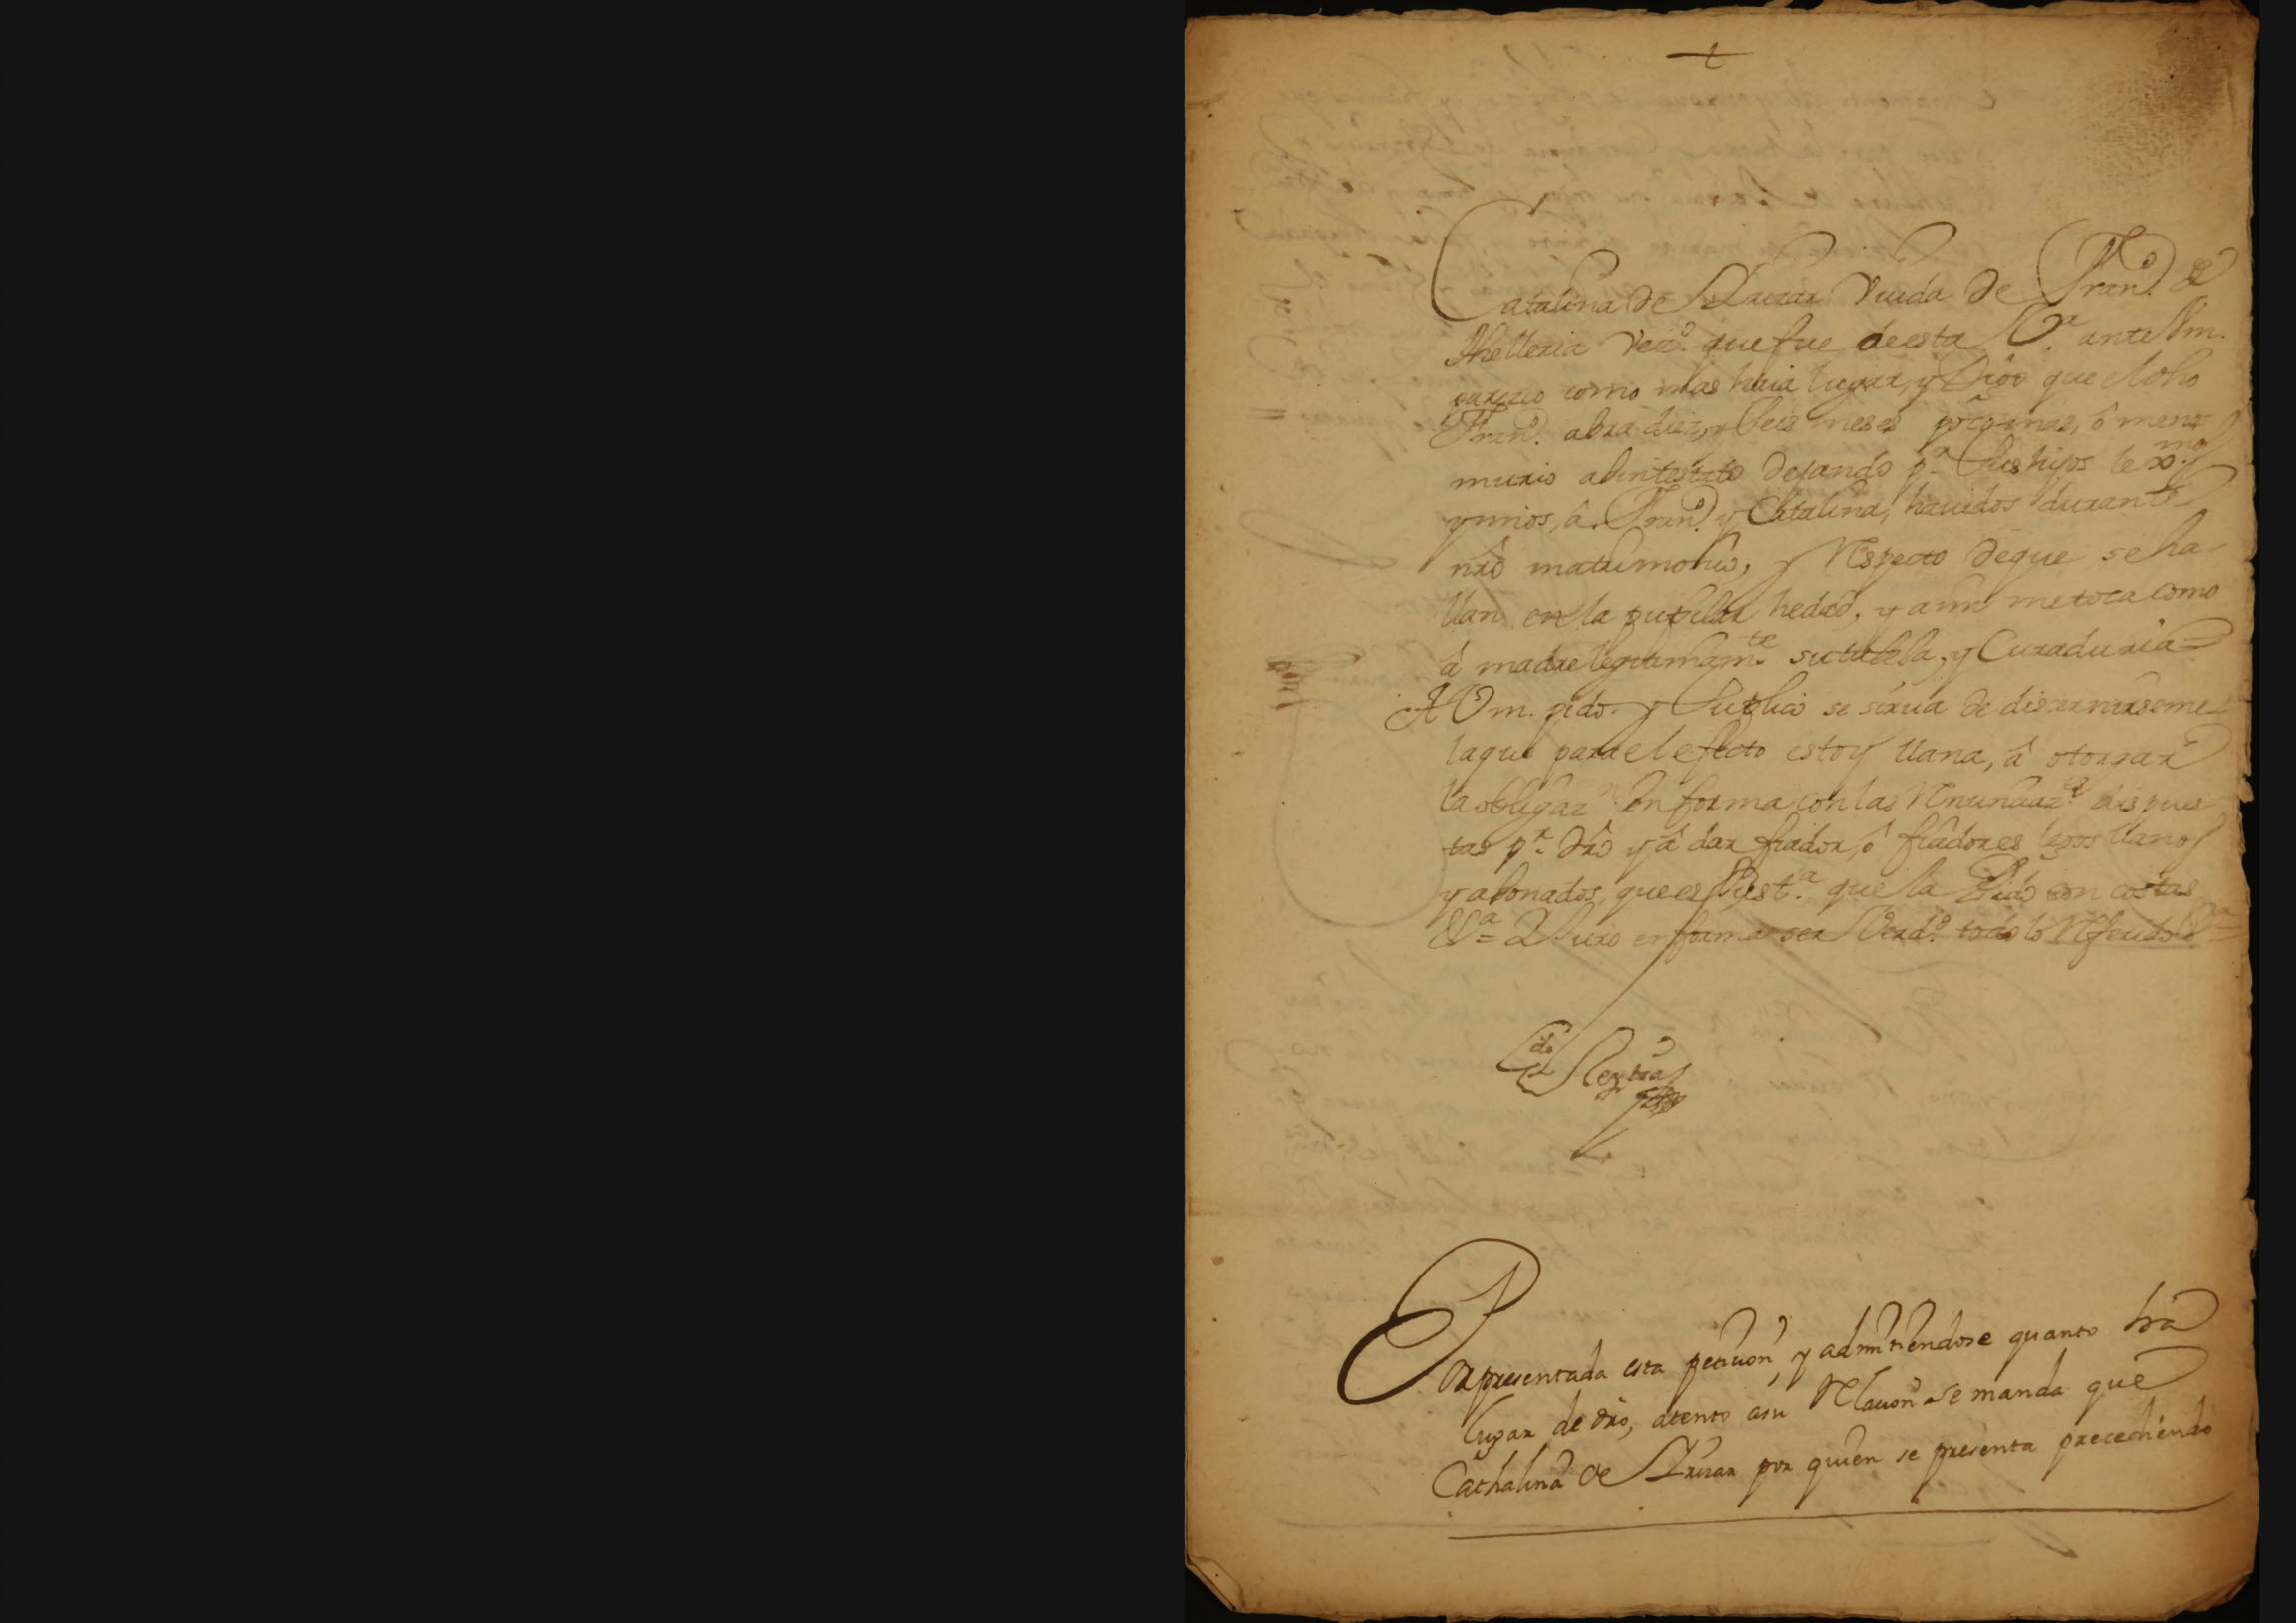 †
Catalina de Yrizar Viuda de Fran.co de
Thelleria Vez.o que fue de esta V.a ante Vm.
parezco como mas haia lugar, y Digo que el dho
Fran.co abra diez, y seis meses poco mas, ô menos
murio abintestato dejando p.r sus hijos lexmos
y mios, â Fran.co y Catalina, hauidos durante
nrô matrimonio, y Respecto de que se ha-
llan en la pupilar hedad, y a mi me toca como
â madre legitimam.te su tutela, y Curaduria =
A Vm. pido y Suplico se sirua de discernirseme
la que para el efecto estoy llana, â otorgar
la obligaz.n en forma con las Renunciaz.s dispues
tas p.r drô y â dar fiador, ô fiadores legos llanos
y abonados, que es Just.a que la Pido con costas
V.a = Y Juro en forma ser Verd.o todo lo Referido V.a =
L.do
Por presentada esta peticion, y admitiendose quanto ha
lugar de dro, atento a su Relacion se manda que
Cathalina de Yrizar por quien se presenta precediendo